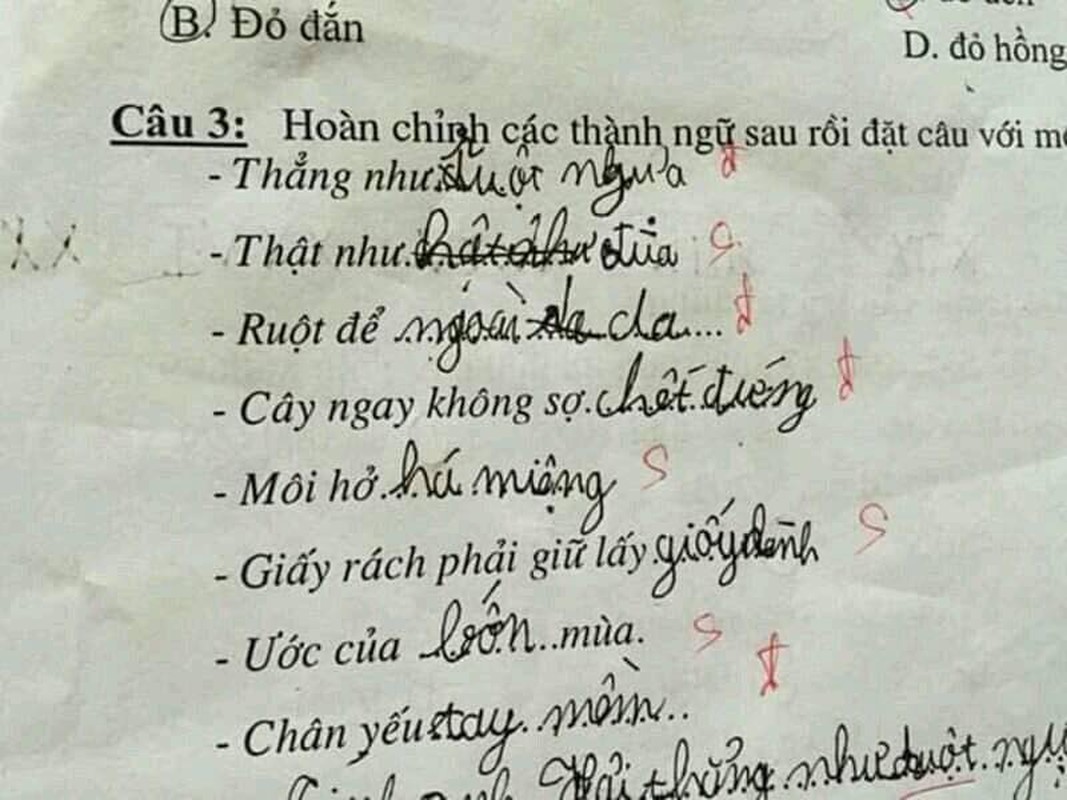 B. Đỏ đắn
D. đỏ hồng
Câu 3: Hoàn chỉnh các thành ngữ sau rồi đặt câu với
- Thẳng như ruột ngựa đ
- Thật như đùa s
- Ruột để ngoài da... đ
- Cây ngay không sợ chết đứng đ
- Môi hở há miệng s
- Giấy rách phải giữ lấy giấy lành s
- Ước của lớn..mùa. s
- Chân yếu tay mềm.. đ
thẳng như ruột